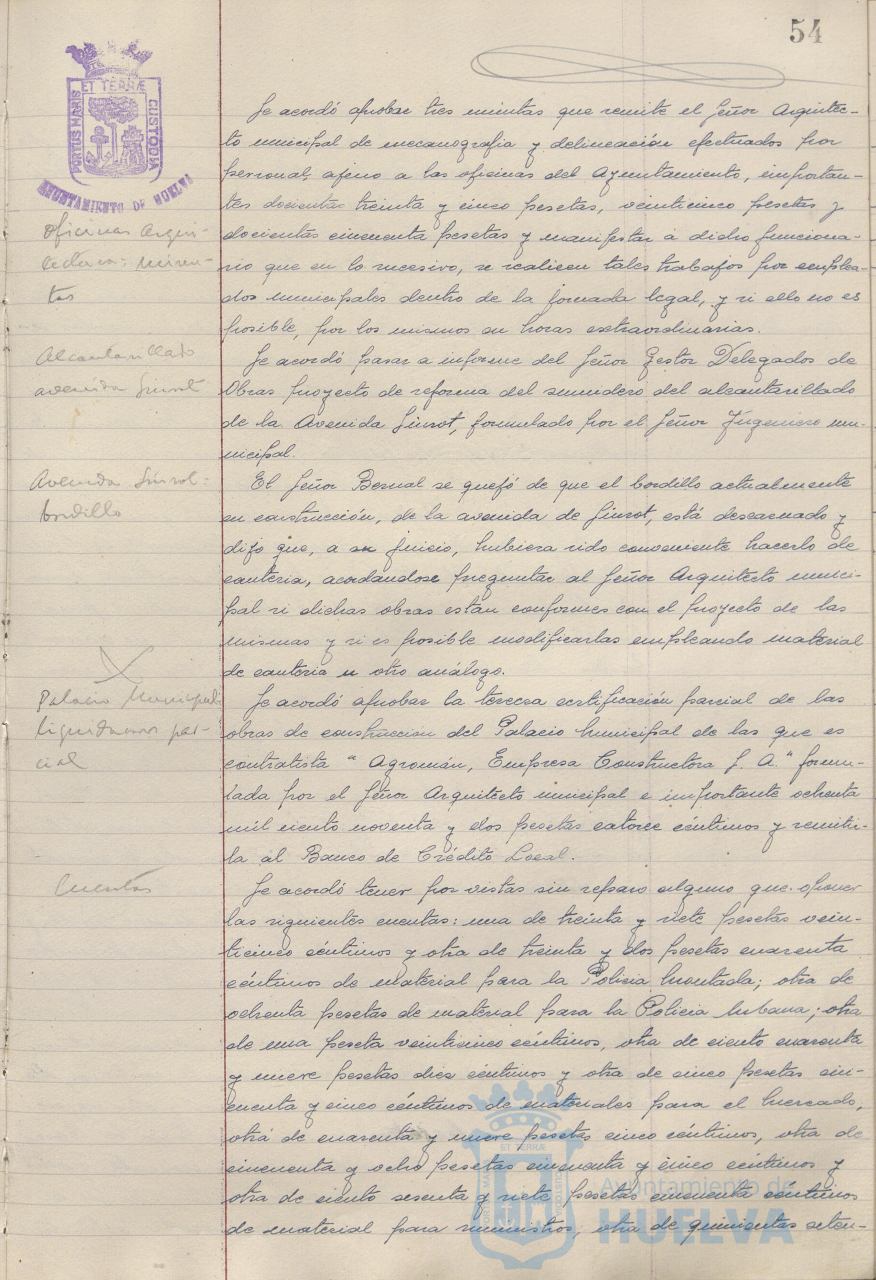 54
ET TERRÆ
PORTUS MARIS
CUSTODIA
AYUNTAMIENTO DE HUELVA
Se acordó aprobar tres minutas que remite el Señor Arquitec-
to municipal de mecanografia y delineación efectuados por
personal ajeno a las oficinas del Ayuntamiento, importan-
tes docientas treinta y cinco pesetas, veinticinco pesetas y
docientas cincuenta pesetas y manifestar a dicho funciona-
rio que en lo sucesivo, se realicen tales trabajos por emplea-
dos municipales dentro de la jornada legal, y si ello no es
posible, por los mismos en horas extraordinarias.
Oficinas Arqui-
minu-
tas
Se acordó pasar a informe del Señor Gestor Delegados de
Obras proyecto de reforma del sumidero del alcantarillado
de la Avenida Siurot, formulado por el Señor Ingeniero mu-
nicipal.
Alcantarillado
avenida Siurot
El Señor Bernal se quejó de que el bordillo actualmente
en construcción, de la avenida de Siurot, está descarnado y
dijo que, a su juicio, hubiera sido conveniente hacerlo de
canteria, acordandose preguntar al Señor Arquitecto munici-
pal si dichas obras están conformes con el proyecto de las
mismas y si es posible modificarlas empleando material
de canteria u otro análogo.
Avenida Siurot:
bordillo
Se acordó aprobar la tercera certificación parcial de las
obras de construcción del Palacio Municipal de las que es
contratista "Agromán, Empresa Constructora S. A." formu-
lada por el Señor Arquitecto municipal e importante ochenta
mil ciento noventa y dos pesetas catorce céntimos y remitir-
la al Banco de Crédito Local.
Palacio Municipal
liquidacion par-
cial
Se acordó tener por vistas sin reparo alguno que oponer
las siguientes cuentas: una de treinta y siete pesetas vein-
ticinco céntimos y otra de treinta y dos pesetas cuarenta
céntimos de material para la Policia Montada; otra de
ochenta pesetas de material para la Policia Urbana; otra
de una peseta veinticinco céntimos, otra de ciento cuarenta
y nueve pesetas diez céntimos y otra de cinco pesetas cin-
cuenta y cinco céntimos de materiales para el Mercado,
otra de cuarenta y nueve pesetas cinco céntimos, otra de
cincuenta y ocho pesetas cincuenta y cinco céntimos y
otra de ciento sesenta y siete pesetas cincuenta céntimos
de material para suministros, otra de quinientas seten-
Cuentas
Ayuntamiento de
HUELVA